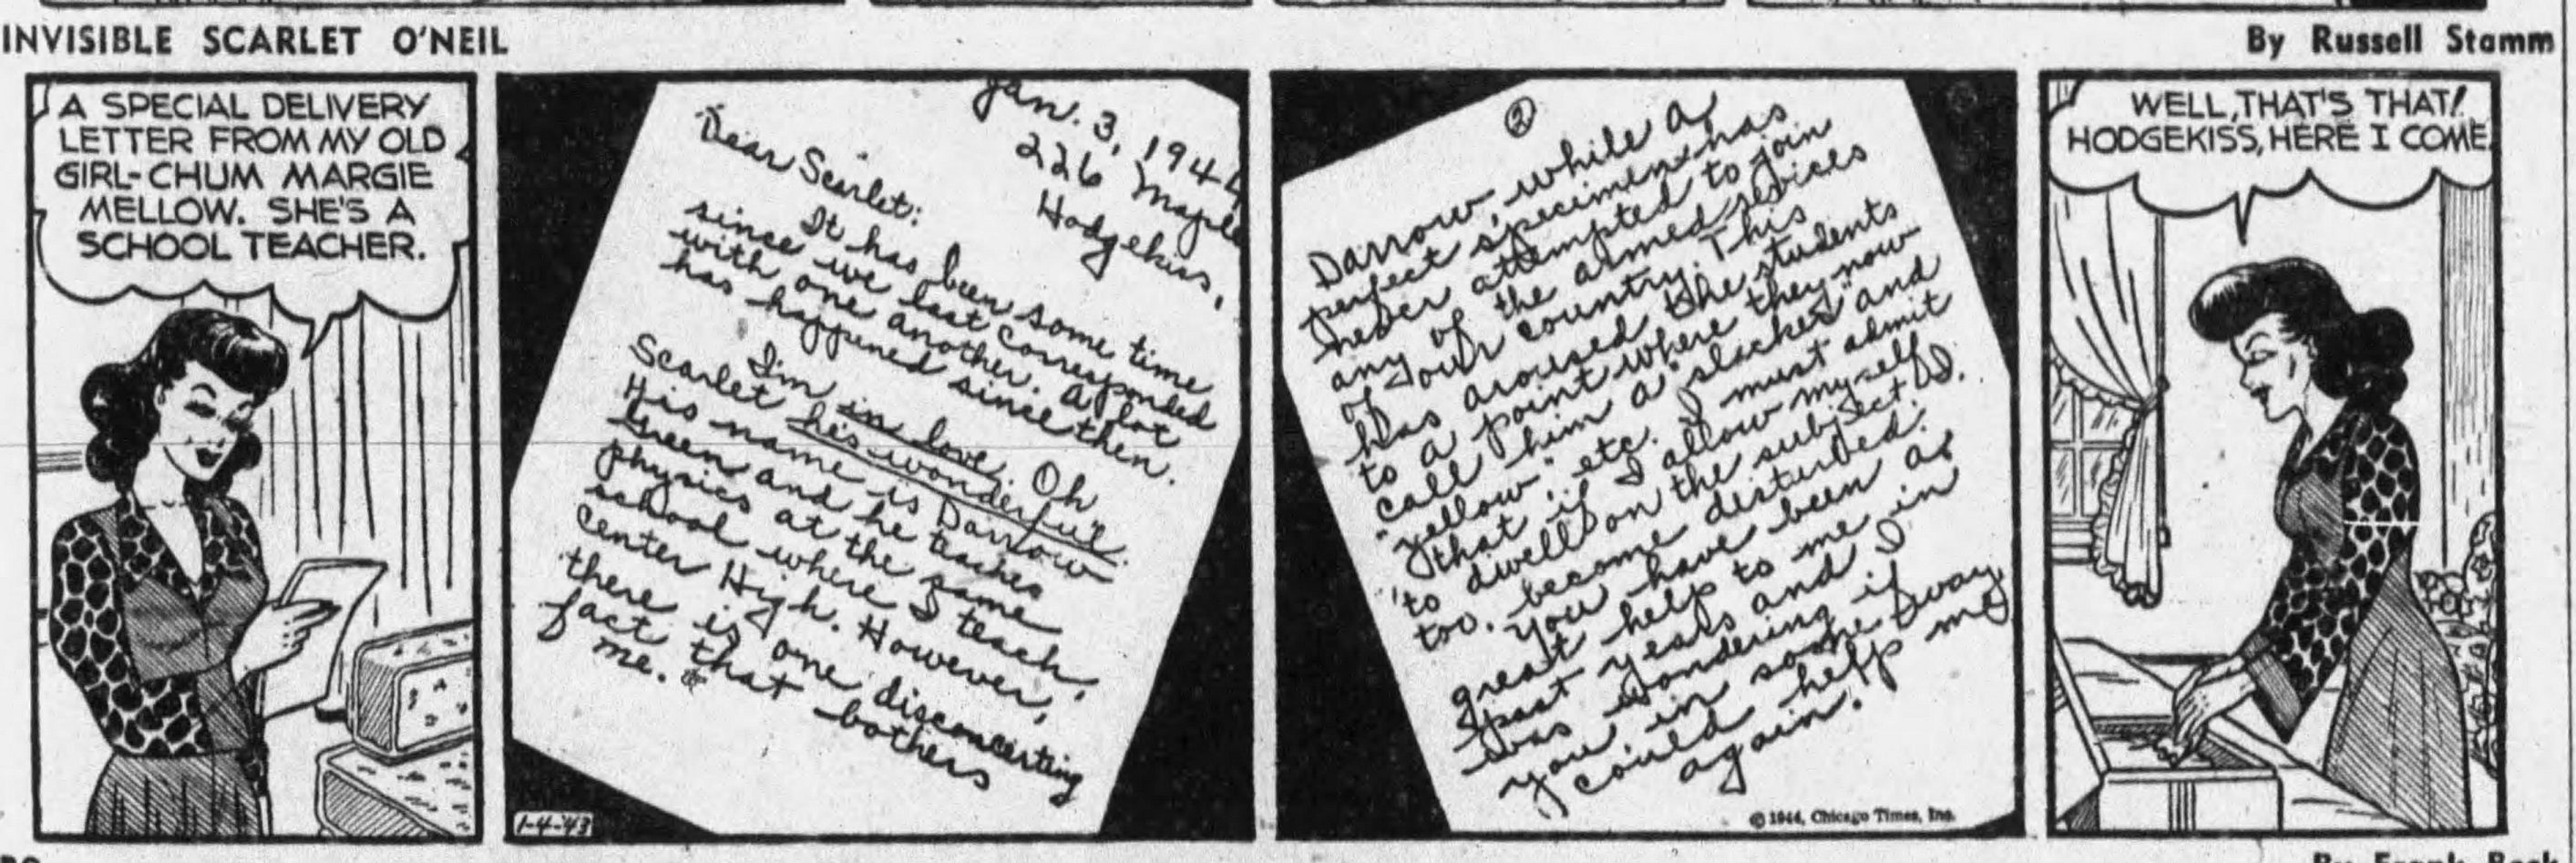 INVISIBLE SCARLET O'NEIL
By Russell Stamm
A SPECIAL DELIVERY
LETTER FROM MY OLD
GIRL-CHUM MARGIE
MELLOW. SHE'S A
SCHOOL TEACHER.
Jan. 3, 1944
226 Maple
Hodgekiss,
Dear Scarlet:
It has been some time
since we last corresponded
with one another. A lot
has happened since then.
I'm in love. Oh
Scarlet he's wonderful.
His name is Darrow
Green and he teaches
physics at the same
school where I teach,
Center High. However,
there is one disconcerting
fact that bothers
me.
1-4-43
2
Darrow, while a
perfect specimen has
never attempted to join
any of the armed services
of our country. This
has aroused the students
to a point where they now
call him a "slacker" and
"yellow", etc. I must admit
that if I allow myself
to dwell on the subject I
too, become disturbed.
You have been a
great help to me in
past years and I
was wondering if
you in some way
could help me
again.
© 1944, Chicago Times, Inc.
WELL, THAT'S THAT!
HODGEKISS, HERE I COME